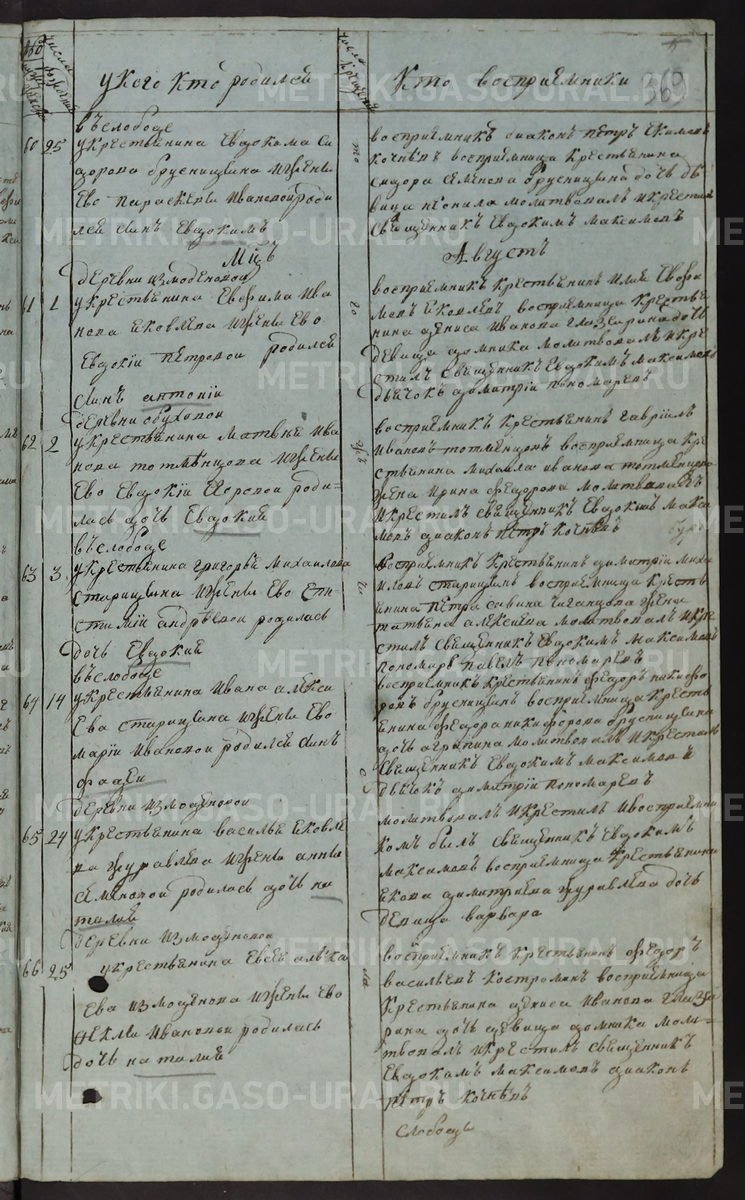 у кого кто родился
Кто восприемники
369
въ слободе
60 25 у крестьянина Евдокима Си
дорова брусницына и жены
Ево Параскевы Ивановой роди
лся сынъ Евдокимъ
восприемникъ диаконъ петръ
кочневъ восприемница крестьянина
сидора семенова брусницына дочь де
вица неонила молитвовалъ и крестилъ
священникъ Евдокимъ максимовъ
Мцъ Августъ
деревни измоденовой
61 1 у крестьянина Ефрима Ива
нова яковлева и жены Ево
Евдокии петровой родился
сынъ антоний
восприемникъ крестьянинъ илья Ефри
мовъ яковлевъ восприемница крестья
нина дениса иванова глазырина дочь
девица домника молитвовалъ и кре
стилъ священникъ Евдокимъ максимовъ
дьячокъ димитрий пономаревъ
деревни обуховой
62 2 у крестьянина матвея ива
нова тотменцова и жены
Ево Евдокии Егоровой роди
лась дочь Евдокия
восприемникъ крестьянинъ гавриилъ
ивановъ тотменцовъ восприемница кре
стьянина михаила иванова тотменцова
жена ирина федорова молитвовалъ
и крестилъ священникъ Евдокимъ макси
мовъ диаконъ петръ кочневъ
въ слободе
63 3 у крестьянина григорья михаилова
старицына и жены Ево Епи
стимии андреевой родилась
дочь Евдокия
восприемникъ крестьянинъ димитрий миха
иловъ старицынъ восприемница кресть
янина петра савина чиганцова жена
татьяна алексеева молитвовалъ и кре
стилъ священникъ Евдокимъ максимовъ
пономарь павелъ пономаревъ
въ слободе
64 14 у крестьянина Ивана алекси
Ева старицына и жены Ево
марии Ивановой родился сынъ
фадей
восприемникъ крестьянинъ федоръ никифо
ровъ брусницынъ восприемница кресть
янина федора никифорова брусницына
дочь агрипина молитвовалъ и крестилъ
священникъ Евдокимъ максимовъ
дьячокъ димитрий пономаревъ
деревни измоденовой
65 24 у крестьянина василья яковле
ва журавлева и жены анны
семеновой родилась дочь на
талия
молитвовалъ и крестилъ и восприемни
комъ былъ священникъ Евдокимъ
максимовъ восприемница крестьянина
якова димитриева журавлева дочь
девица варвара
деревни измоденовой
66 25 у крестьянина Евсея алекса
Ева измоденова и жены Ево
феклы Ивановой родилась
дочь наталия
восприемникъ крестьянинъ федоръ
васильевъ костроминъ восприемница
крестьянина дениса Иванова глазы
рина дочь девица домника моли
твовалъ и крестилъ священникъ
Евдокимъ максимовъ диаконъ
петръ кочневъ
слободы
METRIKI.GASO-URAL.RU